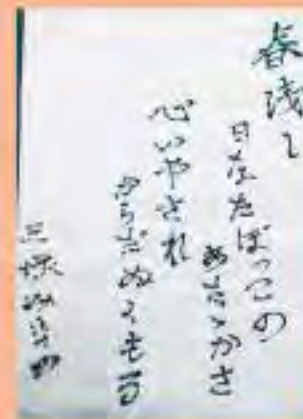 春浅し
日なたぼっこの
あたゝかさ
心いやされ
からだぬくもる
三塚